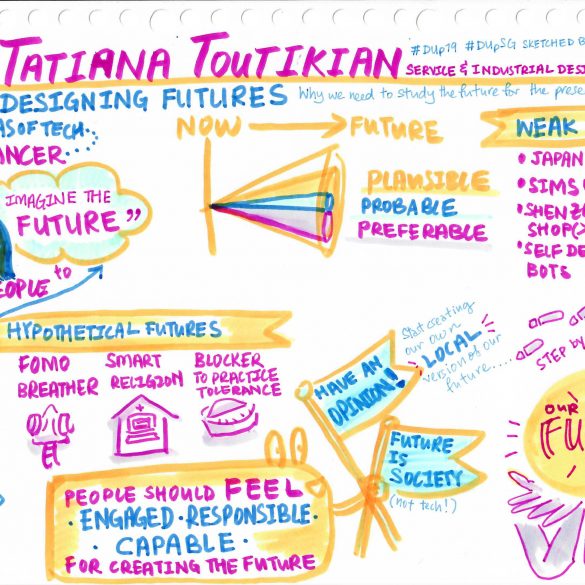 TATIANA TOUTIKIAN
#DUP19 #DUPSG SKETCHED B
SERVICE & INDUSTRIAL DESI
DESIGNING FUTURES
Why we need to study the future for the prese
AS OF TECH...
ANCER
IMAGINE THE
FUTURE"
EOPLE to
NOW → FUTURE
PLAUSIBLE
PROBABLE
PREFERABLE
WEAK
• JAPAN
• SIMS
• SHENZ
SHOP(
• SELF DE
BOTS
HYPOTHETICAL FUTURES
FOMO
BREATHER
SMART
RELIGION
BLOCKER
TO PRACTICE
TOLERANCE
HAVE AN
OPINION!
Start creating
our own
LOCAL
version of our
future....
FUTURE
IS
SOCIETY
(not tech!)
STEP BY
OUR
FU
PEOPLE SHOULD FEEL
• ENGAGED • RESPONSIBLE •
CAPABLE •
FOR CREATING THE FUTURE